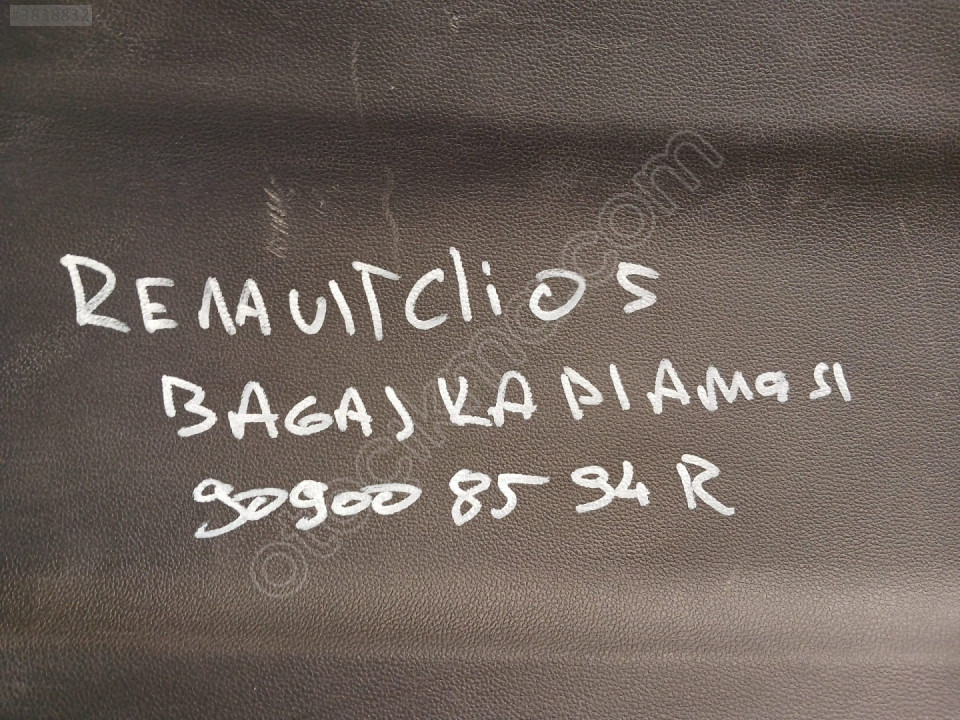 #3838832
RENAULT CliO 5
BAGAJ KAPlAMASI
90900 85 94 R
otocikma.com